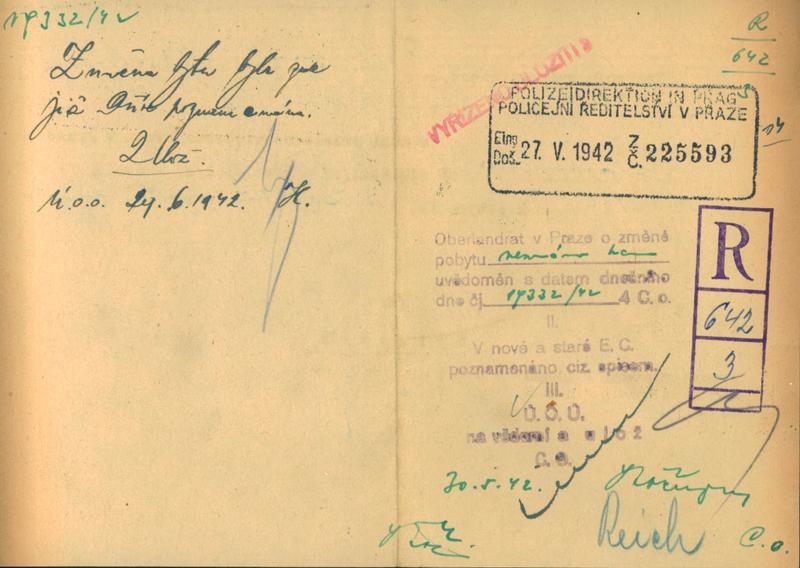 19332/42
Změna bytu byla zde
již dříve poznamenána.
Založ.
29.6.1942.
R
642
VYŘÍZENO
POLIZEIDIREKTION IN PRAG
POLICEJNÍ ŘEDITELSTVÍ V PRAZE
Eing.
Doš. 27. V. 1942 Z Č. 225593
14
Oberlandrat v Praze o změně
pobytu
uvědoměn s datem dnešního
dne čj. 19332/42 4 C. o.
II.
V nové a staré E. C.
poznamenáno ciz. spisem.
III.
Ú. O. Ú.
na vědomí a ulož
C. o.
R
642
3
30.5.42.
Reich
C. o.